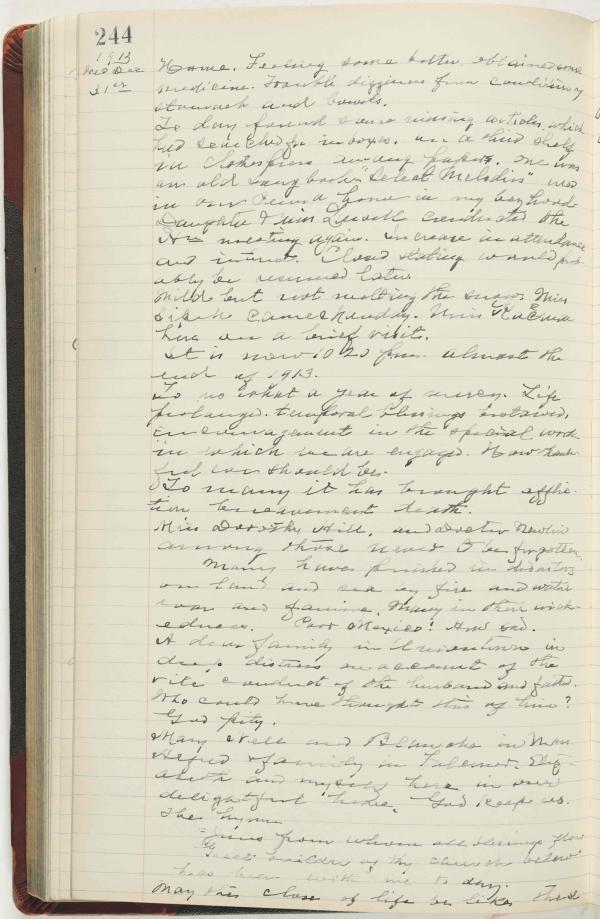 244
1913
Wed Dec
31st
Home. Feeling some better, obtained some
medicine. Trouble dizziness from condition of
stomach and bowels.
To day found some missing articles which
had searched for in boxes, on a third shelf
in clothespress among papers. One was
an old song book "Select Melodies" used
in our home in my boyhood.
Daughter & Miss conducted the
meeting again. Increase in attendance
and interest. Closed stating would prob-
ably be resumed later.
Mild but not melting the snow. Miss
came Monday. Miss
here on a brief visit.
It is now 10 20 p.m. almost the
end of 1913.
To us what a year of mercy. Life
prolonged. temporal blessings bestowed,
encouragement in the special work
in which we are engaged. How thank-
ful we should be.
To many it has brought afflic-
tion bereavement death.
Miss Dorothy Hill, and Doctor
among those never to be forgotten.
Many have perished in disasters
on land and sea by fire and water
war and famine. Many in their wick-
edness. Poor Mexico! How sad.
A dear family in Uniontown in
deep distress on account of the
vile conduct of the husband and father.
Who could have thought this of him?
God pity.
Mary Nell and Blanche in
Alfred & family in Eliz-
abeth and myself here in our
delightful home. God keep us.
The hymn
"Jesus from whom all blessings flow
Great builder of thy church below"
has been with me to day.
May this close of life be like the